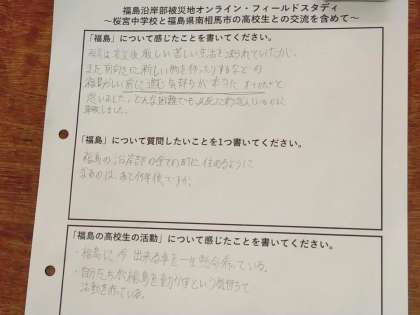 福島沿岸部被災地オンライン・フィールドスタディ
～桜宮中学校と福島県南相馬市の高校生との交流を含めて～
「福島」について感じたことを書いてください。
福島は震災後厳しい苦しい生活を送られていたが、
また前向きに新しい物を作ったりするなどの
福島がいい前に進む気持ちが本当にすばらしいと
思いました。どんな困難でも
「福島」について質問したいことを1つ書いてください。
福島の沿岸部の全てのまちに住めるように
なるのは、あと何年後ですか。
「福島の高校生の活動」について感じたことを書いてください。
・福島に今出来る事を一生懸命やっている。
・自分たちが福島を動かすという気持ちで
活動を行っている。